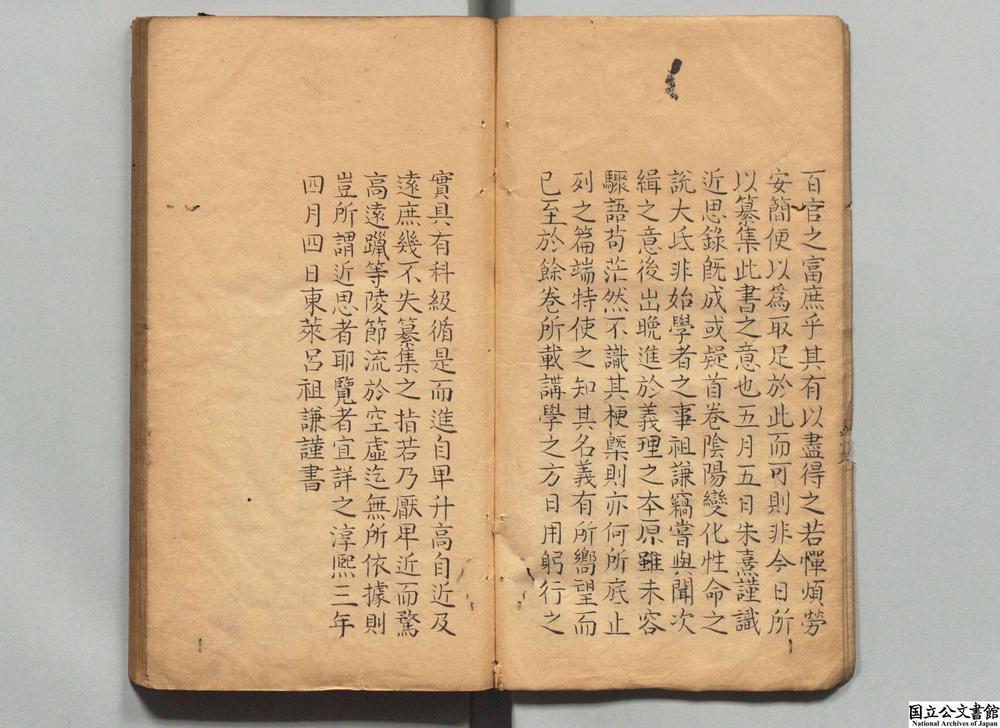 百官之富庶乎其有以盡得之若憚煩勞
安簡便以為取足於此而可則非今日所
以纂集此書之意也五月五日朱熹謹識
近思錄旣成或疑首卷陰陽變化性命之
說大氐非始學者之事祖謙竊嘗與聞次
緝之意後出晚進於義理之本原雖未容
驟語苟茫然不識其梗槩則亦何所底止
列之篇端特使之知其名義有所嚮望而
已至於餘卷所載講學之方日用躬行之
實具有科級循是而進自卑升高自近及
遠庶幾不失纂集之指若乃厭卑近而騖
高遠躐等陵節流於空虛迄無所依據則
豈所謂近思者耶覽者宜詳之淳熙三年
四月四日東萊呂祖謙謹書
国立公文書館
National Archives of Japan